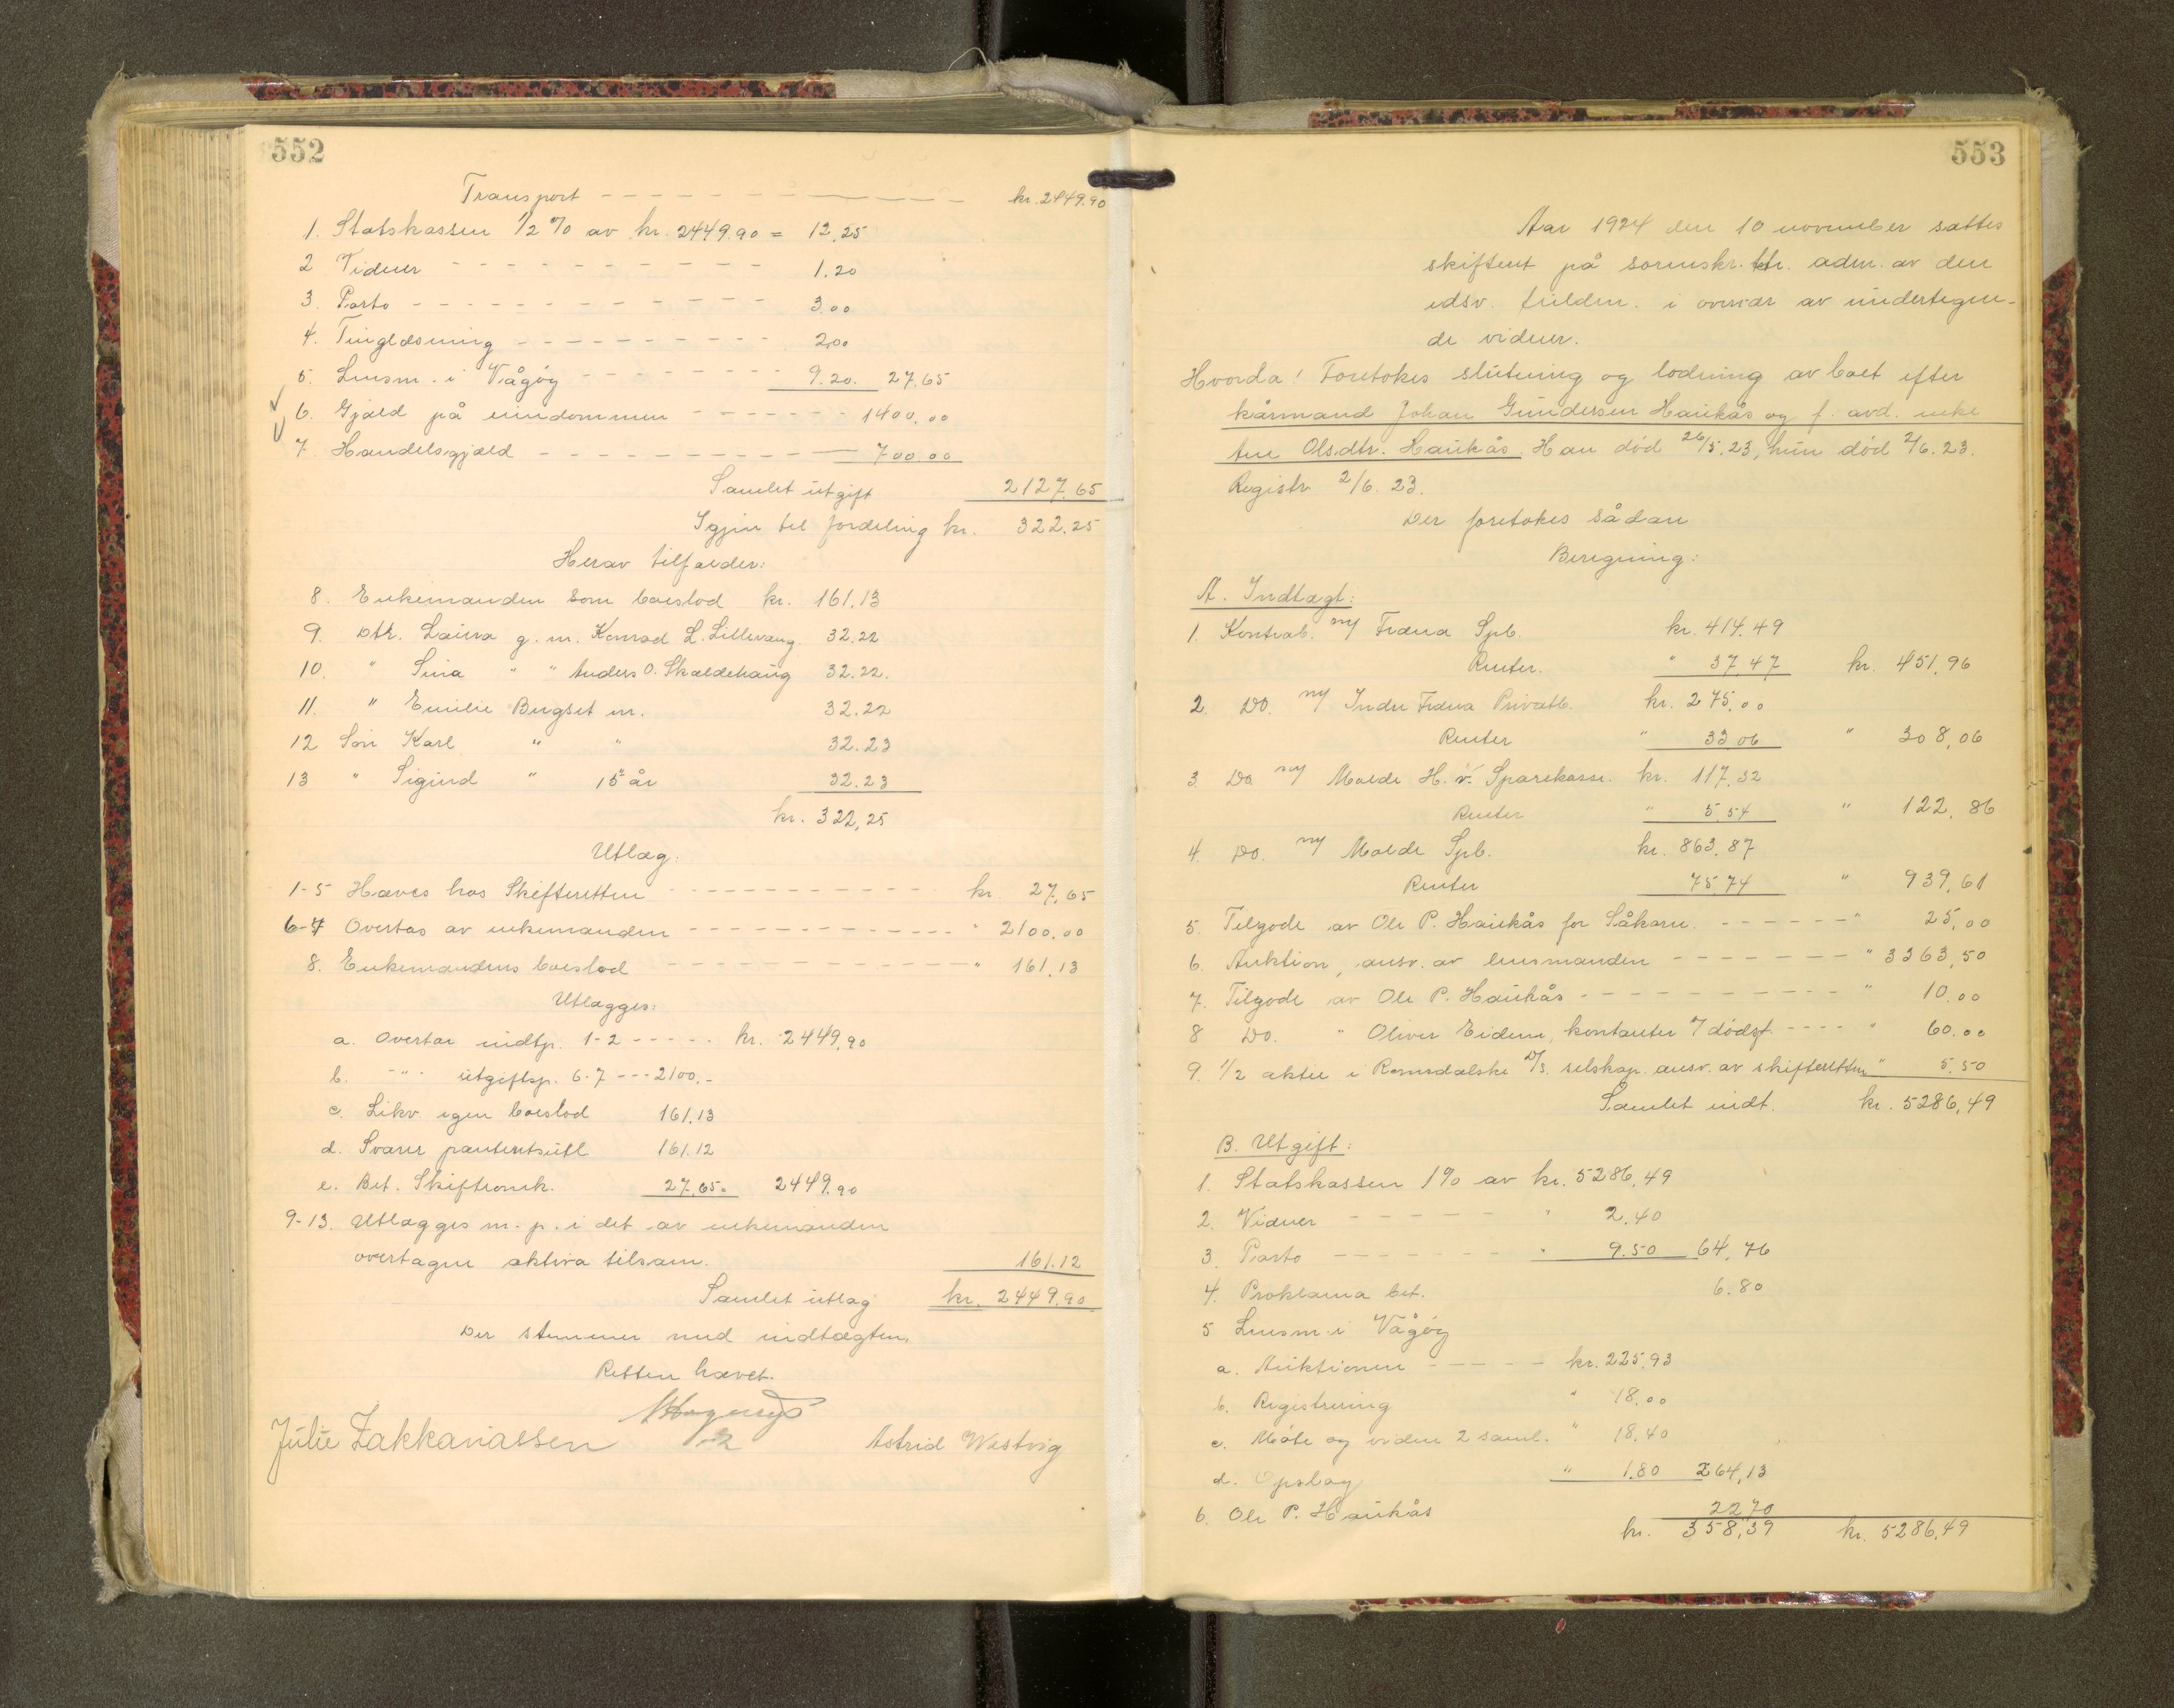 552
Transport kr. 2449.90
1. Statskassen 1/2 % av kr. 2449.90 = 12.25
2 Vidner 1.20
3. Porto 3.00
4. Tinglæsning 2.00
5. Lensm. i Vågøy 9.20. 27.65
6. Gjæld på eiendommen 1400.00
7. Handelsgjæld 700.00
Samlet utgift 2127.65
Igjen til fordeling kr. 322.25
Herav tilfalder:
8. Enkemanden som boeslod kr. 161.13
9. Dtr. Laura g. m. Konrad L. Lillevang. 32.22
10. " Sina " " Anders O. Skaldehaug 32.22.
11. " Emilie Bugset m. 32.22
12 Søn Karl " " 32.23
13 " Sigurd " 15 år 32.23
kr. 322,25
Utlæg:
1-5 Hæves hos Skifteretten kr. 27.65
6-7 Overtas av enkemanden " 2100.00
8. Enkemandens boeslod " 161.13
Utlægges:
a. Overtar indtp. 1-2 kr. 2449,90
b. -"- utgiftsp. 6-7 --- 2100.-
c. Likv. egen boeslod 161.13
d. Svarer panterets utl 161.12
e. Bet. Skifteomk. 27.65. 2449.90
9-13. Utlægges m. p. i det av enkemanden
overtagne aktiva tilsam. 161.12
Samlet utlæg kr. 2449.90
Der stemmer med indtægten.
Retten hævet.
Julie Zakkariassen Astrid Wæstvig
553
Aar 1924 den 10 november sattes
skifteret på sorenskr. ktr. adm. av den
edsv. fuldm. i overvær av undertegne-
de vidner.
Hvorda! Foretokes slutning og lodning av boet efter
kårmand Johan Gundersen Haukås og f. avd. enke
Ane Olsdtr. Haukås. Han død 26/5.23, hun død 2/6.23.
Registr 2/6.23.
Der foretokes sådan
Beregning:
A. Indtægt:
1. Kontrab. m/ Fræna Spb. kr. 414.49
Renter. " 37,47 kr. 451,96
2. Do. m/ Indre Fræna Privatb. kr. 275.00
Renter " 33 06 " 308,06
3 Do. m/ Molde H. v. Sparekasse. kr. 117.32
Renter " 5.54 " 122,86
4. Do. m/ Molde Spb. kr. 863.87
Renter 75.74 " 939,61
5. Tilgode av Ole P. Haukås for Såkorn. " 25,00
6. Auktion, ansv. av lensmanden " 3363,50
7. Tilgode av Ole P. Haukås " 10.00
8 Do. " Oliver Eidem, kontanter v/dødsf. " 60.00
9. 1/2 aktie i Romsdalske D/S. selskap. ansv. av skifteretten " 5.50
Samlet indt. kr. 5286,49
B. Utgift:
1. Statskassen 1% av kr. 5286,49
2. Vidner " 2.40
3. Porto " 9.50 64,76
4. Proklama bet. 6.80
5 Lensm. i Vågøy
a. Auktionen kr. 225,93
b. Registrering " 18.00
c. Møte og vidne 2 saml. " 18.40
d. Opslag " 1.80 264,13
6. Ole P. Haukås 22 70
kr. 358,39 kr. 5286,49